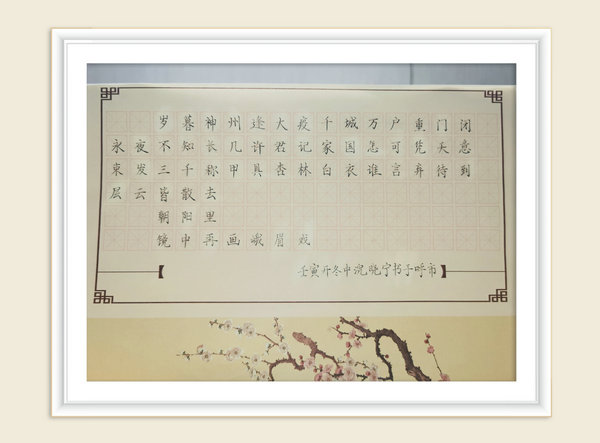 岁暮神州逢大疫千城万户重门闭
永夜不知长几许君记家国怎可凭天意
束发三千称甲具杏林白衣谁言弃待到
层云皆散去
朝阳里
镜中再画峨眉戏
壬寅开冬中浣晓宁书于呼市